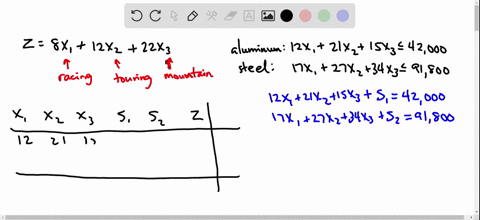 Z = 8x₁ + 12x₂ + 22x₃
racing touring mountain
aluminum: 12x₁ + 21x₂ + 15x₃ ≤ 42,000
steel: 17x₁ + 27x₂ + 34x₃ ≤ 91,800
12x₁ + 21x₂ + 15x₃ + S₁ = 42,000
17x₁ + 27x₂ + 34x₃ + S₂ = 91,800
x₁ x₂ x₃ S₁ S₂ Z
12 21 1